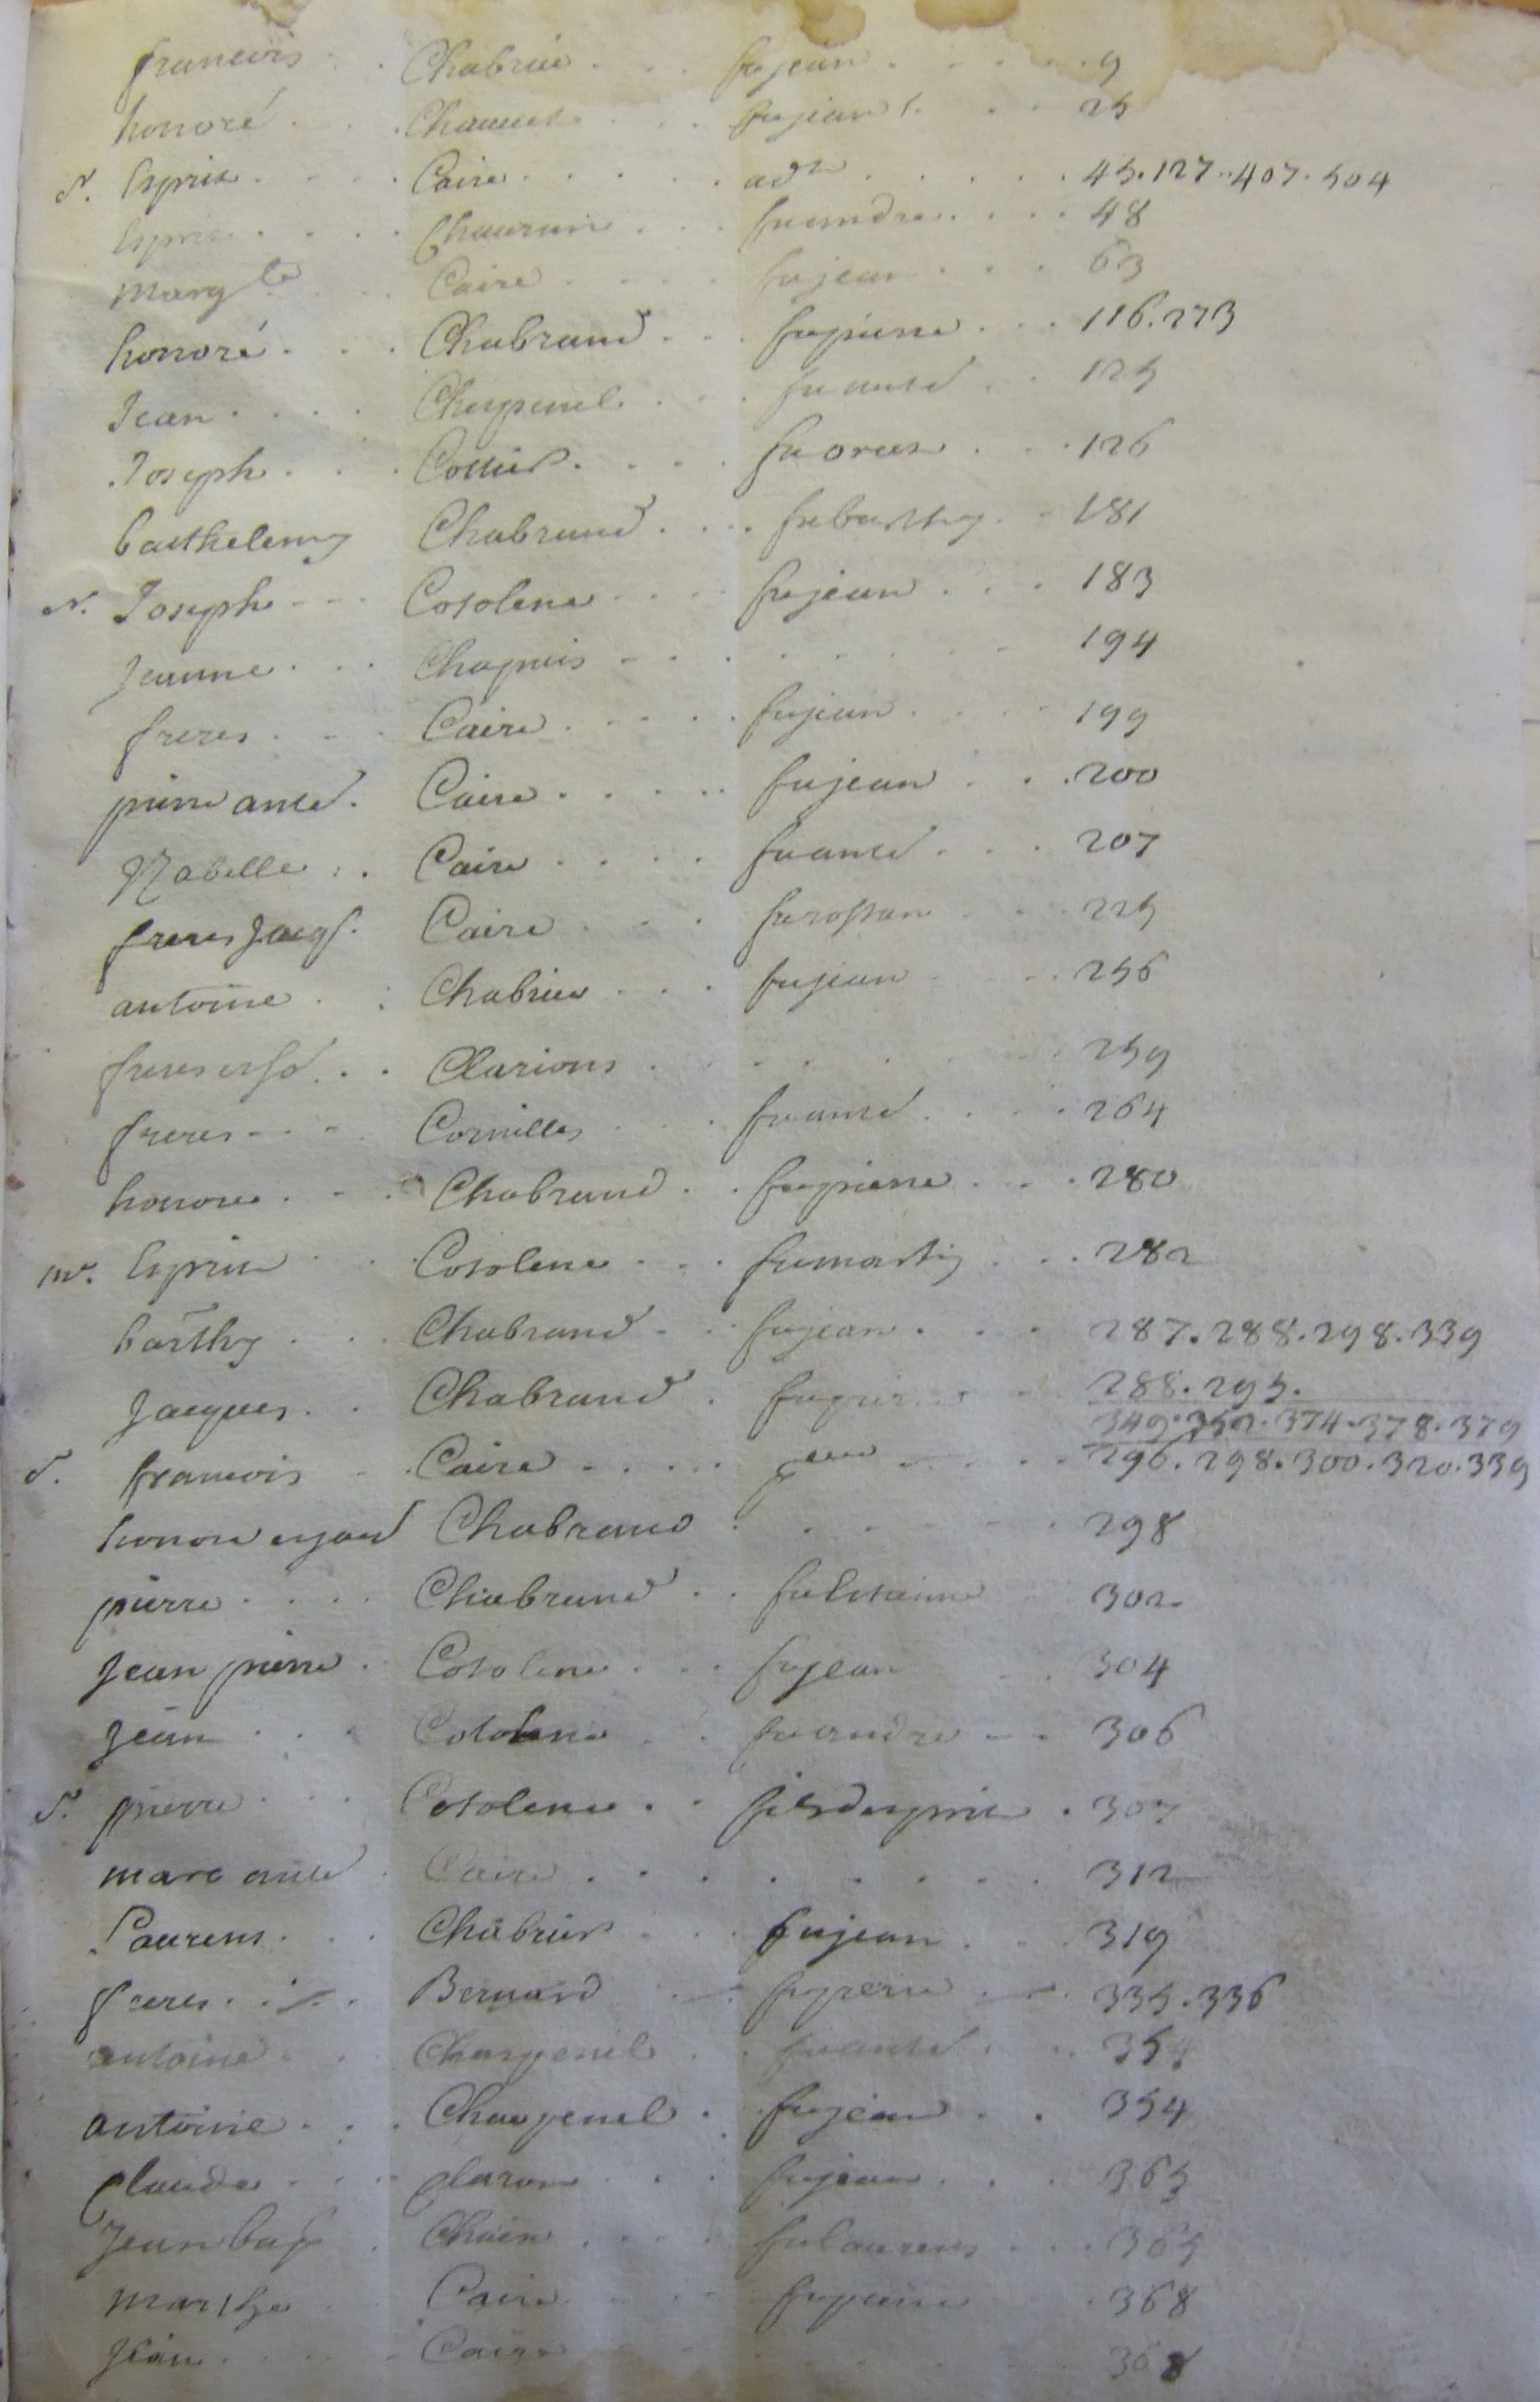 francois Chabrier fu jean 9
honoré Chauvet fu jean 25
S. Esprit Caire adt 45. 127. 407. 504
Esprit Chaurun fu andre 48
marg te Caire fu jean 63
honoré Chabrand fu pierre 116. 273
Jean Charpenel fu anto 125
Joseph Cottier 126
barthelemy Chabrand fu barthy 181
N. Joseph Cosolene fu jean 183
Jeanne Chapuis 194
freres Caire fu jean 199
pierre anto Caire fu jean 200
Izabelle Caire fu anto 207
freres jacq s Caire fu rostan 225
antoine Chabrier fu jean 256
freres Clarions 259
freres Cornilles fu anto 264
honore Chabrand fu pierre 280
mr. Esprit Cosolene fu martin 282
barthy Chabrand fu jean 287. 288. 298. 339
Jacques Chabrand fu pierre 288. 295.
349. 352. 374. 378. 379
S. francois Caire 296. 298. 300. 320. 339
honore Chabrand 298
pierre Chabrand fu antoine 302
Jean pierre Cosolene fu jean 304
Jean Cosolene fu andre 306
S. pierre Cosolene fils desprit 307
marc anto Caire 312
Laurens Chabrier fu jean 319
freres Bernard fu pierre 335. 336
antoine Charpenel fu anto 354
antoine Charpenel fu jean 354
claude claron fu jean 365
Jean bap Chaix fu laurens 365
marthe Caire fu pierre 368
Jean Caire 368